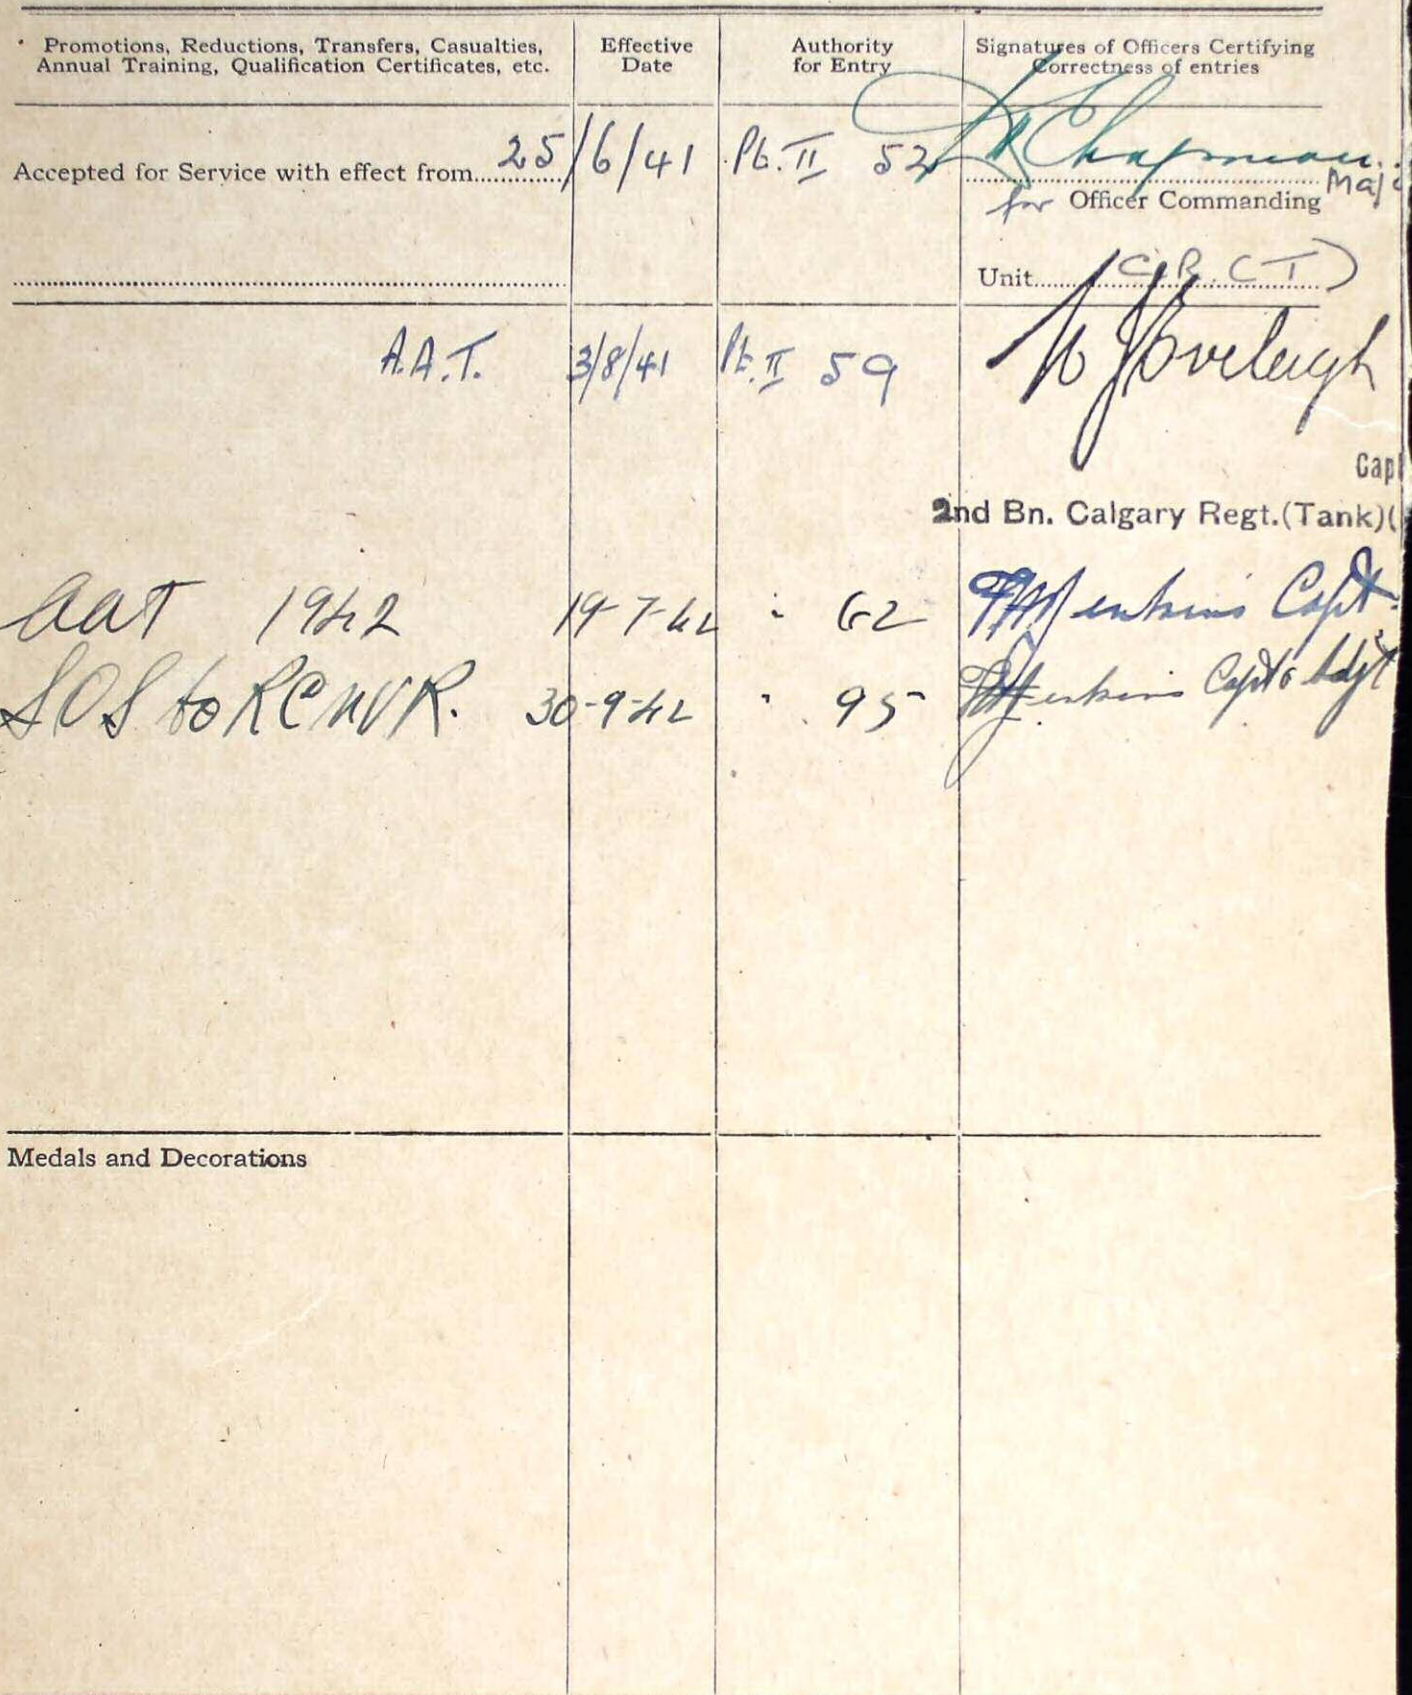 Promotions, Reductions, Transfers, Casualties, Annual Training, Qualification Certificates, etc.
Effective Date
Authority for Entry
Signatures of Officers Certifying Correctness of entries
Accepted for Service with effect from 25/6/41 Pt. II 52 Chapman. Maj
for Officer Commanding
Unit C.R. (T)
A.A.T. 3/8/41 Pt. II 59
Capt
2nd Bn. Calgary Regt.(Tank)(
AAT 1942 19-7-42 " 62 Jenkins Capt.
SOS to RCNVR. 30-9-42 " 95 Jenkins Capt & Adjt
Medals and Decorations